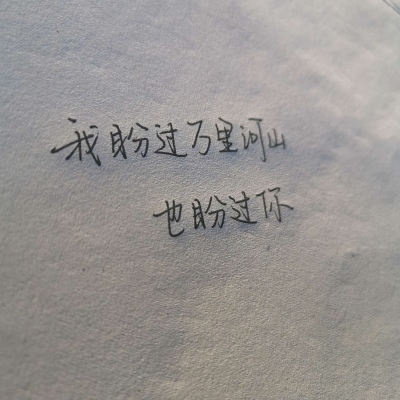 我盼过万里河山
也盼过你